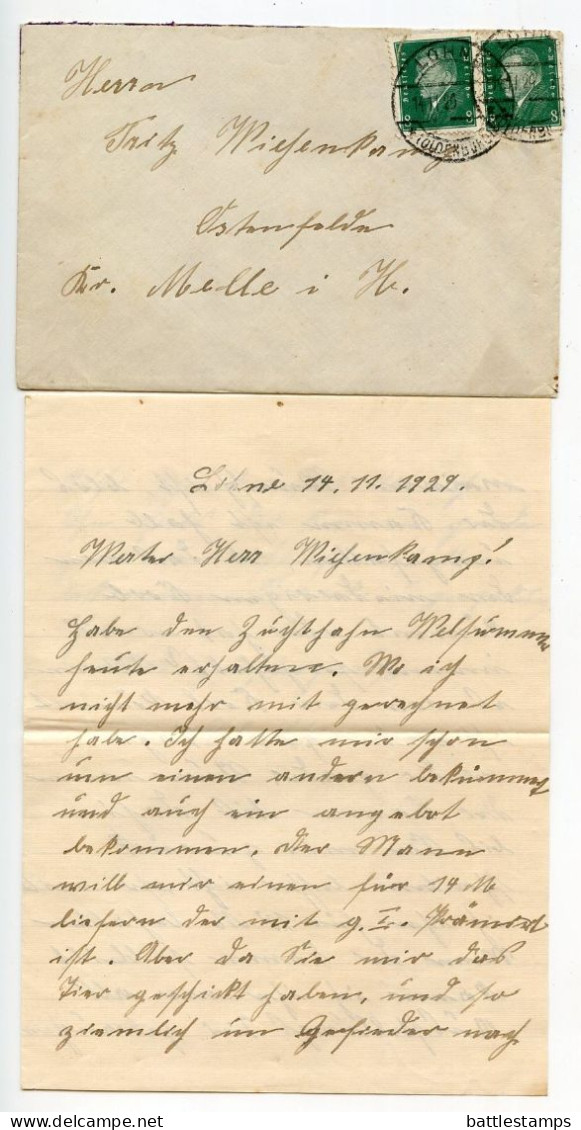 Herrn
Fritz Wiesenkamp
Ostenfelde
Kr. Melle i. H.
LOHNE
(OLDENBURG)
8
8
Lohne 14.11.1929.
Werter Herr Wiesenkamp!
Habe den Zuchthahn Welsummer
heute erhalten. Wo ich
nicht mehr mit gerechnet
habe. Ich hatte mir schon
um einen andern bekümmert
und auch ein angebot
bekommen. Der Mann
will mir einen für 14 M
liefern der mit g. I. Prämirt
ist. Aber da Sie mir das
Tier geschickt haben, und so
ziemlich im Gefieder nach
battlestamps